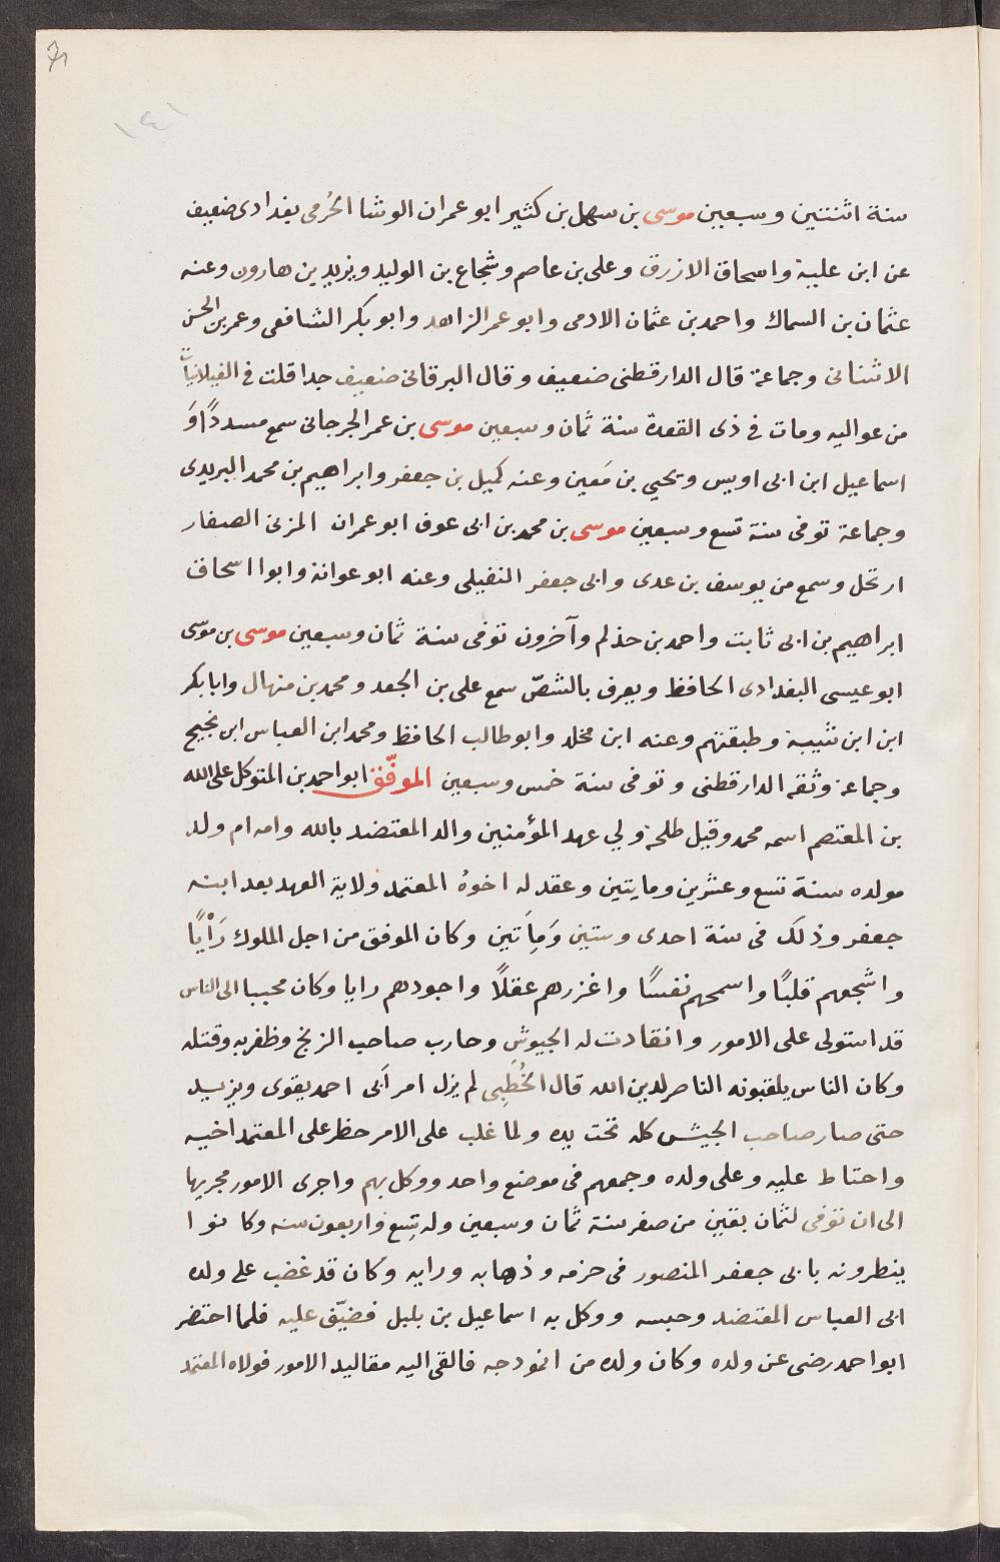 71
١٤١
سنة اثنتين وسبعين موسى بن سهل بن كثير ابو عمران الوشا الحُرمى بغدادى ضعيف
عن ابن علية واسحاق الازرق وعلى بن عاصم وشجاع بن الوليد ويزيد بن هارون وعنه
عثمان بن السماك واحمد بن عثمان الادمى وابو عمر الزاهد وابو بكر الشافعى وعمر بن الحسن
الاشنانى وجماعة قال الدارقطنى ضعيف وقال البرقانى ضعيف جدا قلت فى الغيلانيات
من عواليه ومات فى ذى القعدة سنة ثمان وسبعين موسى بن عمر الجرجانى سمع مسددًا وَ
اسماعيل ابن ابى اويس ويحيى بن مَعين وعنه كميل بن جعفر وابراهيم بن محمد البريدى
وجماعة توفى سنة تسع وسبعين موسى بن محمد بن ابى عوف ابو عمران المزنى الصفار
ارتحل وسمع من يوسف بن عدى وابى جعفر النفيلى وعنه ابو عوانة وابوا اسحاق
ابراهيم بن ابى ثابت واحمد بن حذلم وآخرون توفى سنة ثمان وسبعين موسى بن موسى
ابو عيسى البغدادى الحافظ ويعرف بالشصّ سمع على بن الجعد ومحمد بن منهال وابا بكر
ابن ابن شيبة وطبقتهم وعنه ابن مخلد وابو طالب الحافظ ومحمد ابن العباس ابن نجيح
وجماعة وثقه الدارقطنى وتوفى سنة خمس وسبعين الموفّق ابو احمد بن المتوكل على الله
بن المعتصم اسمه محمد وقيل طلحة ولي عهد المؤمنين والد المعتضد بالله وامه ام ولد
مولده سنة تسع وعشرين ومايتين وعقد له اخوهُ المعتمد ولاية العهد بعد ابنه
جعفر وذلك فى سنة احدى وستين وَمِاَتين وكان الموفق من اجل الملوك رَأْيًا
واشجعهم قلبًا واسمحهم نفسًا واغزرهم عقلًا واجودهم رايا وكان محببا الى الناس
قد استولى على الامور وانقادت له الجيوش وحارب صاحب الزنج وظفر به وقتله
وكان الناس يلقبونه الناصر لدين الله قال الخُطَبِى لم يزل امر اَبى احمد يقوى ويزيد
حتى صار صاحب الجيش كله تحت يده ولما غلب على الامر حظر على المعتمد اخيه
واحتاط عليه وعلى ولده وجمعهم فى موضع واحد ووكل بهم واجرى الامور مجريها
الى ان توفى لثمان بقين من صفر سنة ثمان وسبعين وله تِسع واربعون سنه وكانوا
ينظرونه بابى جعفر المنصور فى حزمه وذهابه ورايه وكان قد غضب على ولده
ابى العباس المعتضد وحبسه ووكل به اسماعيل بن بلبل فضيّق عليه فلما احتضر
ابو احمد رضى عن ولده وكان ولده من انموذجه فالقى اليه مقاليد الامور فولاه المعتمد